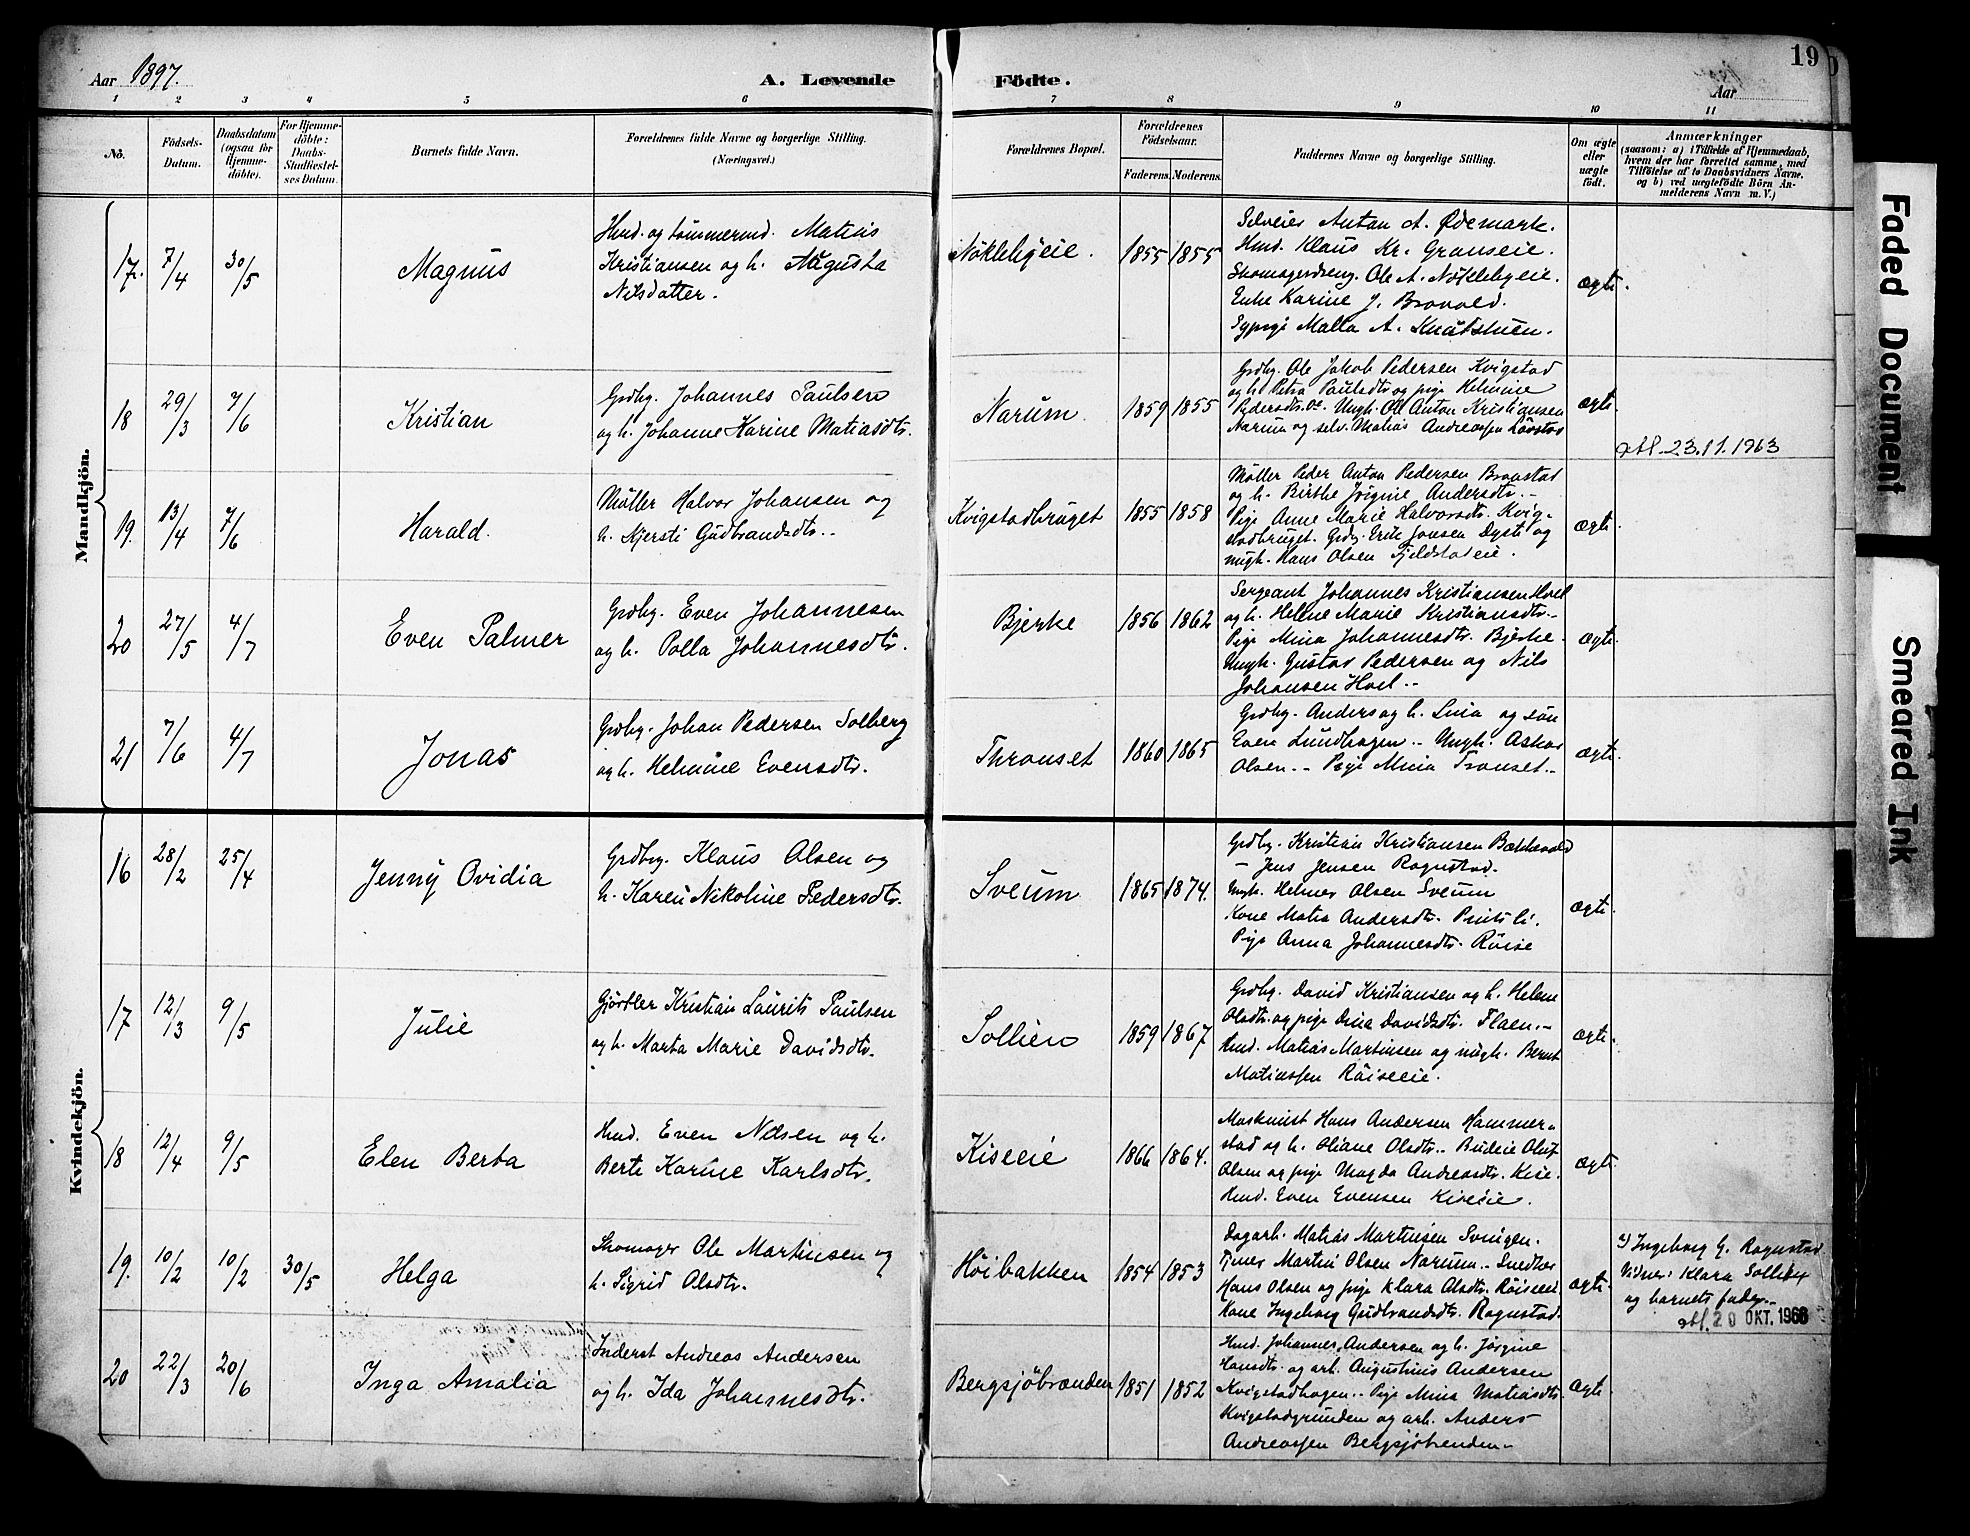 Aar 1897.
A. Levende Födte.
19
Aar
1 2 3 4 5 6 7 8 9 10 11
No.
Födsels-Datum.
Daabsdatum (ogsaa for Hjemmedöbte).
For Hjemmedöbte: Daabs-Stadfæstelses Datum.
Barnets fulde Navn.
Forældrenes fulde Navne og borgerlige Stilling.
(Næringsvei.)
Forældrenes Bopæl.
Forældrenes Födselsaar.
Faderens. Moderens.
Faddernes Navne og borgerlige Stilling.
Om ægte eller uægte födt.
Anmærkninger
(saasom: a) i Tilfælde af Hjemmedaab, hvem der har forrettet samme, med Tilföielse af to Daabsvidners Navne, og b) ved uægtefödte Börn Anmelderens Navn m. V.)
Mandkjön.
17. 7/4 30/5 Magnus
Hmd. og tömmermd. Matias
Kristiansen og h. Augusta
Nilsdatter.
Nöklebyeie. 1855 1855
Selveier Anton A. Ödemark.
Hmd. Klaus Kr. Granseie.
Skomagerdreng. Ole A. Nöklebyeie.
Enke Karine J. Bravold.
Sypige Malla A. Knutstuen.
ægte.
18 29/3 7/6 Kristian
Grdbg. Johannes Paulsen
og h. Johanne Karine Matiasdtr.
Narum. 1859 1855
Grdbg. Ole Jakob Pedersen Kvigstad
og h. Petra Paulsdtr og pige Helmine
Pedersdtr. Do. Ungk. Ole Anton Kristiansen
Narum og selv. Matias Andreassen Lövstad
ægte.
23.11.1963
19. 13/4 7/6 Harald.
Møller Halvor Johansen og
h. Kjersti Gudbrandsdtr.
Kvigstadbruget 1855 1858
Møller Peder Anton Pedersen Bragstad
og h. Birthe Jörgine Andersdtr.
Pige Anne Marie Halvorsdtr. Kvig-
stadbruget. Grdbg. Erik Jonsen Dyste og
ungk. Hans Olsen Fjeldstadeie.
ægte.
20 27/5 4/7 Even Palmer
Grdbg. Even Johannesen
og h. Polla Johannesdtr.
Bjerke 1856 1862
Sergeant Johannes Kristiansen Hoel
og h. Helene Marie Kristiansdtr.
Pige Mina Johannesdtr. Bjerke.
Ungk. Gustav Pedersen og Nils
Johansen Hoel.
ægte.
21 7/6 4/7 Jonas
Grdbg. Johan Pedersen Solberg
og h. Helmine Evensdtr.
Thronset 1860 1865
Grdbg. Anders og h. Lina og sön
Even Lundhagen. Ungk. Askar
Olsen. Pige Mina Tronset.
ægte.
Kvindekjön.
16 28/2 25/4 Jenny Ovidia
Grdbg. Klaus Olsen og
h. Karen Nikoline Pedersdtr.
Sveum 1865 1874.
Grdbg. Kristian Kristiansen Bækkevold
— Jens Jensen Rognstad.
Ungk. Helmer Olsen Sveum
Kone Matea Andersdtr. Prestsli.
Pige Anna Johannesdtr. Röise
ægte.
17 12/3 9/5 Julie
Gjörtler Kristian Laurits Paulsen
og h. Marta Marie Davidsdtr.
Sollien 1859 1867
Grdbg. David Kristiansen og h. Helene
Olsdtr. og pige Dina Davidsdtr. Flaen.
Hmd. Matias Martinsen og ungk. Bernt
Matiassen Röiseeie.
ægte.
18 12/4 9/5 Elen Berta
Hmd. Even Nilsen og h.
Berte Karine Karlsdtr.
Kiseeie 1866 1864.
Maskinist Hans Andersen Hammer-
stad og h. Oliane Olsdtr. Budeie Oluf
Olsen og pige Magda Andreasdtr. Kise.
Hmd. Even Evensen Kiseeie.
ægte.
19. 10/2 10/2 30/5 Helga
Skomager Ole Martinsen og
h. Sigrid Olsdtr.
Höibakken 1854 1853
Dagarb. Matias Martinsen Svingen.
Tjener Martin Olsen Narum. Snedker
Hans Olsen og pige Klara Olsdtr. Röiseeie.
Kone Ingeborg Gudbrandsdtr. Rognstad.
ægte.
Ingeborg G. Rognstad.
Vidner: Klara Sollien
og barnets fader.
20 OKT. 1966
20 22/3 20/6 Inga Amalia
Inderst Andreas Andersen
og h. Ida Johannesdtr.
Bergsjöbrænden 1851 1852
Hmd. Johannes Andersen og h. Jörgine
Hansdtr. og arb. Augustinus Andersen
Kvigstadhagen. Pige Mina Matiasdtr.
Kvigstadgrunden og arb. Anders
Andreassen Bergsjöbrenden
ægte.
Faded Document
Smeared Ink